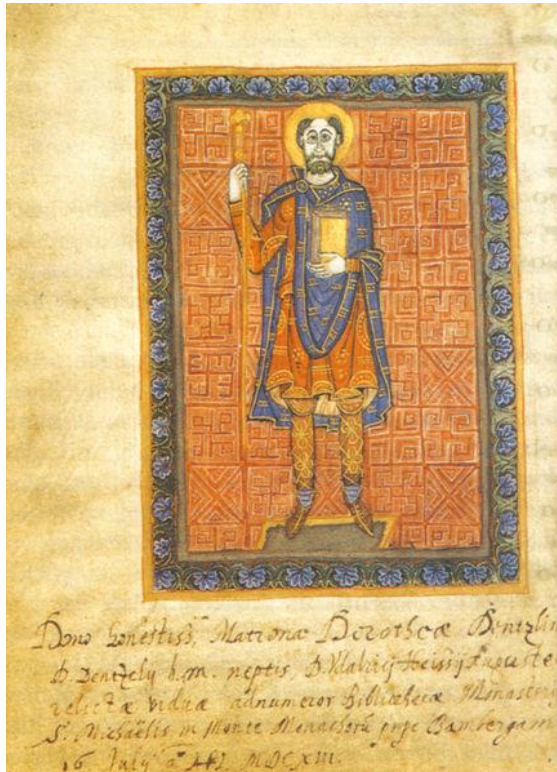 Dono honestiss. Matronæ Dorotheæ Dentzlin
D. Dentzelij b.m. neptis, D. Vdalrici
relictæ viduæ adnumeror Bibliothecæ Monasterij
S. Michaëlis in Monte Monachorū prope Bambergam
16. Julij aº MDCXIII.